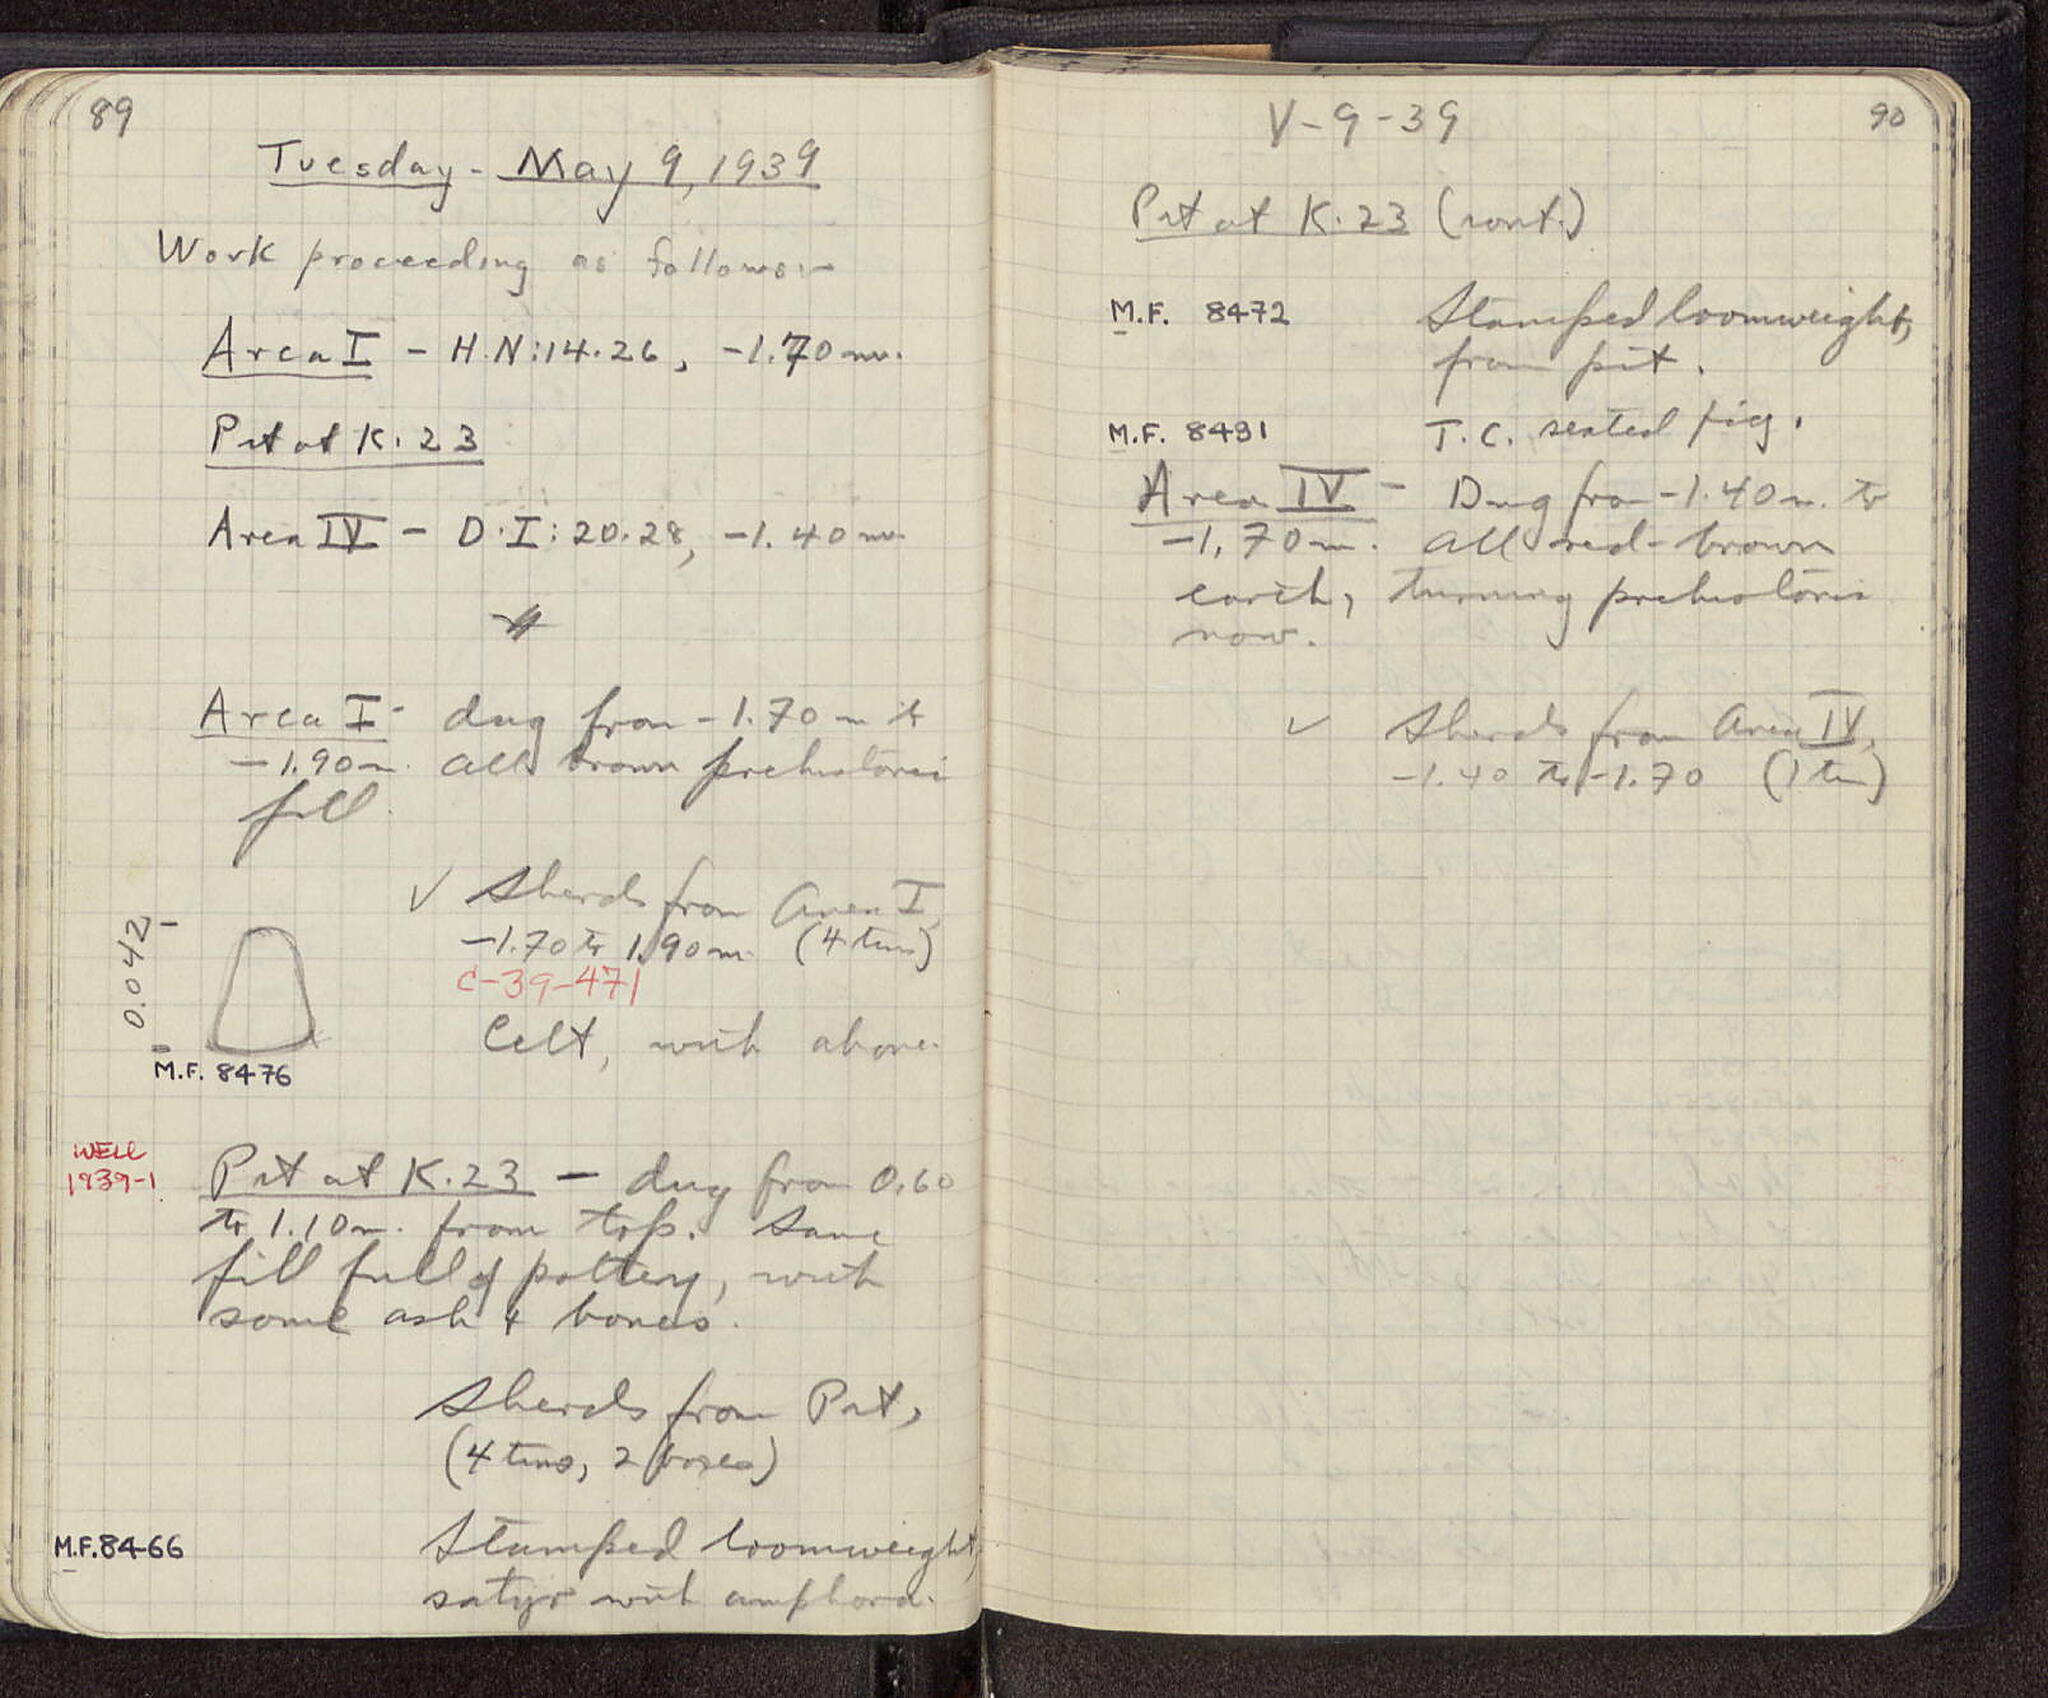 89
Tuesday - May 9, 1939
Work proceeding as follows:-
Area I - H.N:14.26, -1.70 m.
Pit at K.23
Area IV - D.I:20.28, -1.40 m.
Area I - dug from -1.70 m to
-1.90 m. All brown prehistoric
fill.
✓ Sherds from Area I,
-1.70 to 1.90 m. (4 tins)
C-39-471
0.042
Celt, with above.
M.F. 8476
WELL
1939-1
Pit at K.23 - dug from 0.60
to 1.10 m. from top. Same
fill full of pottery, with
some ash + bones.
Sherds from Pit,
(4 tins, 2 boxes)
M.F. 8466
Stamped loomweight,
satyr with amphora.
90
V-9-39
Pit at K.23 (cont.)
M.F. 8472
Stamped loomweight,
from pit.
M.F. 8491
T.C. seated fig.
Area IV - Dug from -1.40 m. to
-1.70 m. All red-brown
earth, turning prehistoric
now.
✓ Sherds from Area IV,
-1.40 to -1.70 (1 tin)